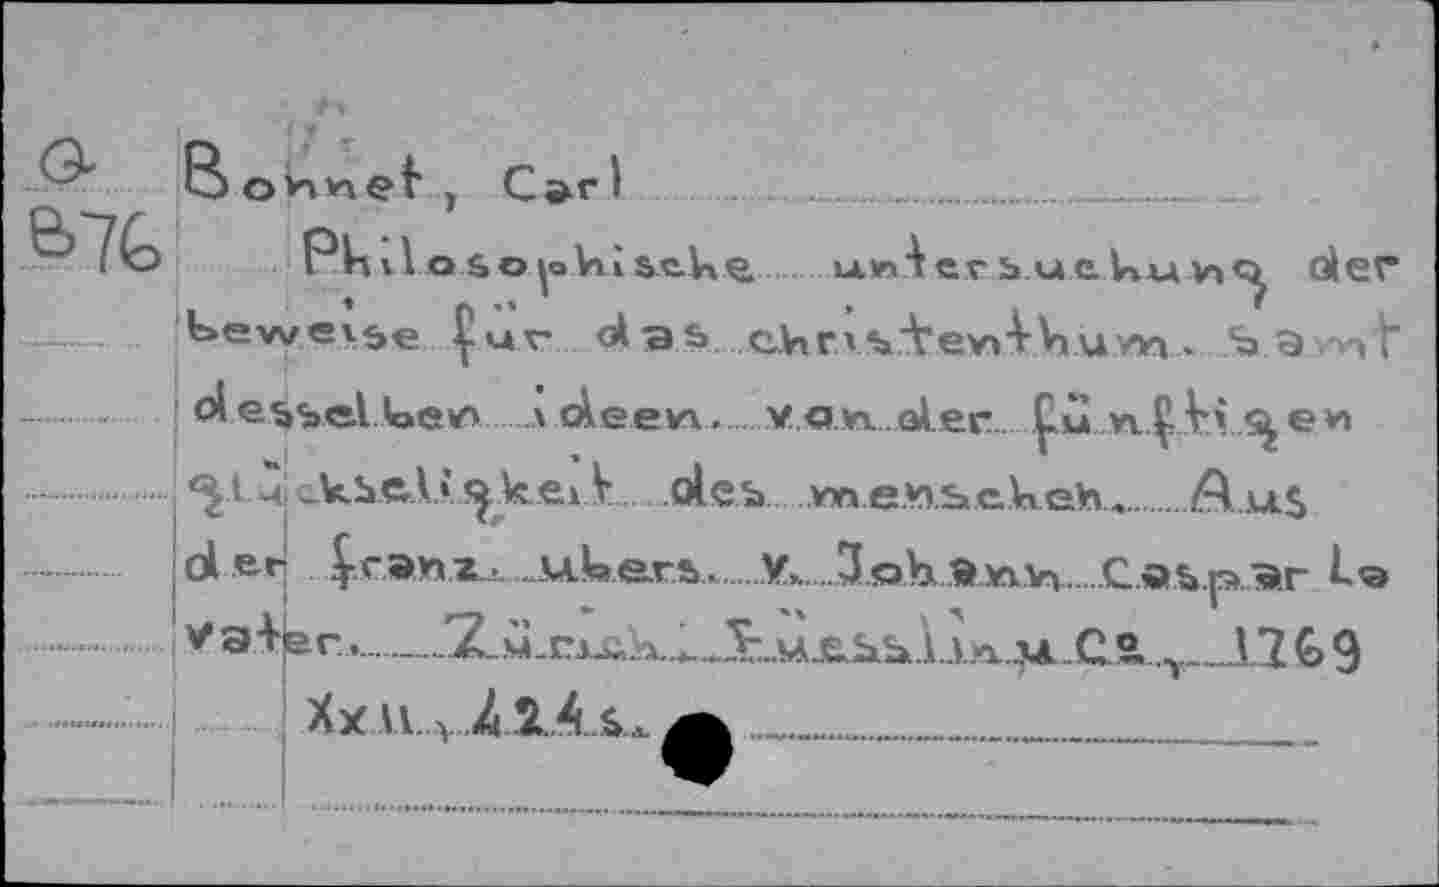 G Bonnet, Carl
B76 Philosophische untersuchung der
beweise für das christenthum. Samt
desselben ideen. von der fünftigen
glückseligkeit des menschen. Aus
der franz. übers. v. Johann Caspar La
vater. Zürich: Fuessli u. Ca, 1769
Xxii, 424 s.